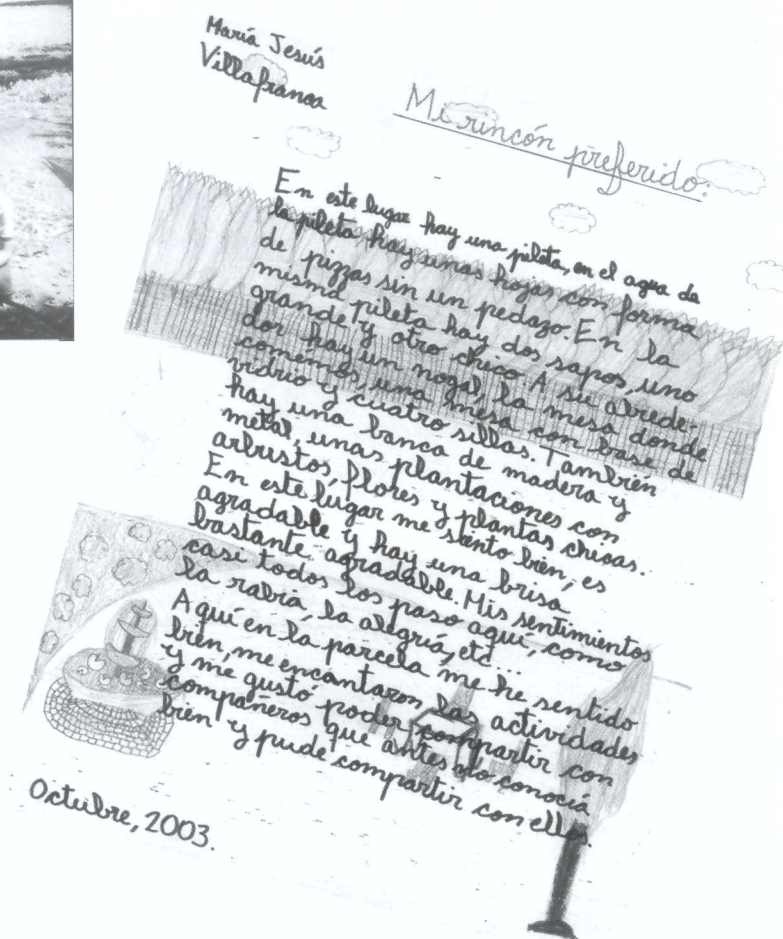 María Jesús
Villafranca
Mi rincón preferido:
En este lugar hay una pileta, en el agua de
la pileta hay unas hojas con forma
de pizzas sin un pedazo. En la
misma pileta hay dos sapos, uno
grande y otro chico. A su alrede-
dor hay un nogal, la mesa donde
comemos, una mesa con base de
vidrio y cuatro sillas. También
hay una banca de madera y
metal, unas plantaciones con
arbustos, flores y plantas chicas.
En este lugar me siento bien, es
agradable y hay una brisa
bastante agradable. Mis sentimientos
casi todos los paso aquí, como
la rabia, la alegría, etc...
Aquí en la parcela me he sentido
bien, me encantaron las actividades
y me gustó poder compartir con
compañeros que antes no conocía
bien y pude compartir con ellos.
Octubre, 2003.